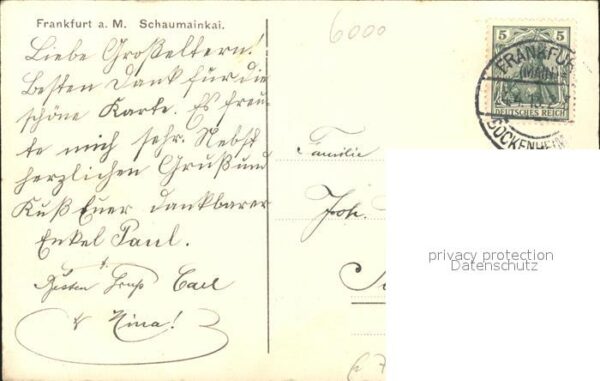 Frankfurt a. M. Schaumainkai.
6000
Liebe Großeltern!
Besten Dank für die
schöne Karte. Es freu-
te mich sehr. Nebst
herzlichen Gruß und
Kuß Euer dankbarer
Enkel Paul.
Besten Gruß Carl
& Nina!
5 5
DEUTSCHES REICH
FRANKFUR
(MAIN)
BOCKENHEIM
Familie
Joh.
privacy protection
Datenschutz